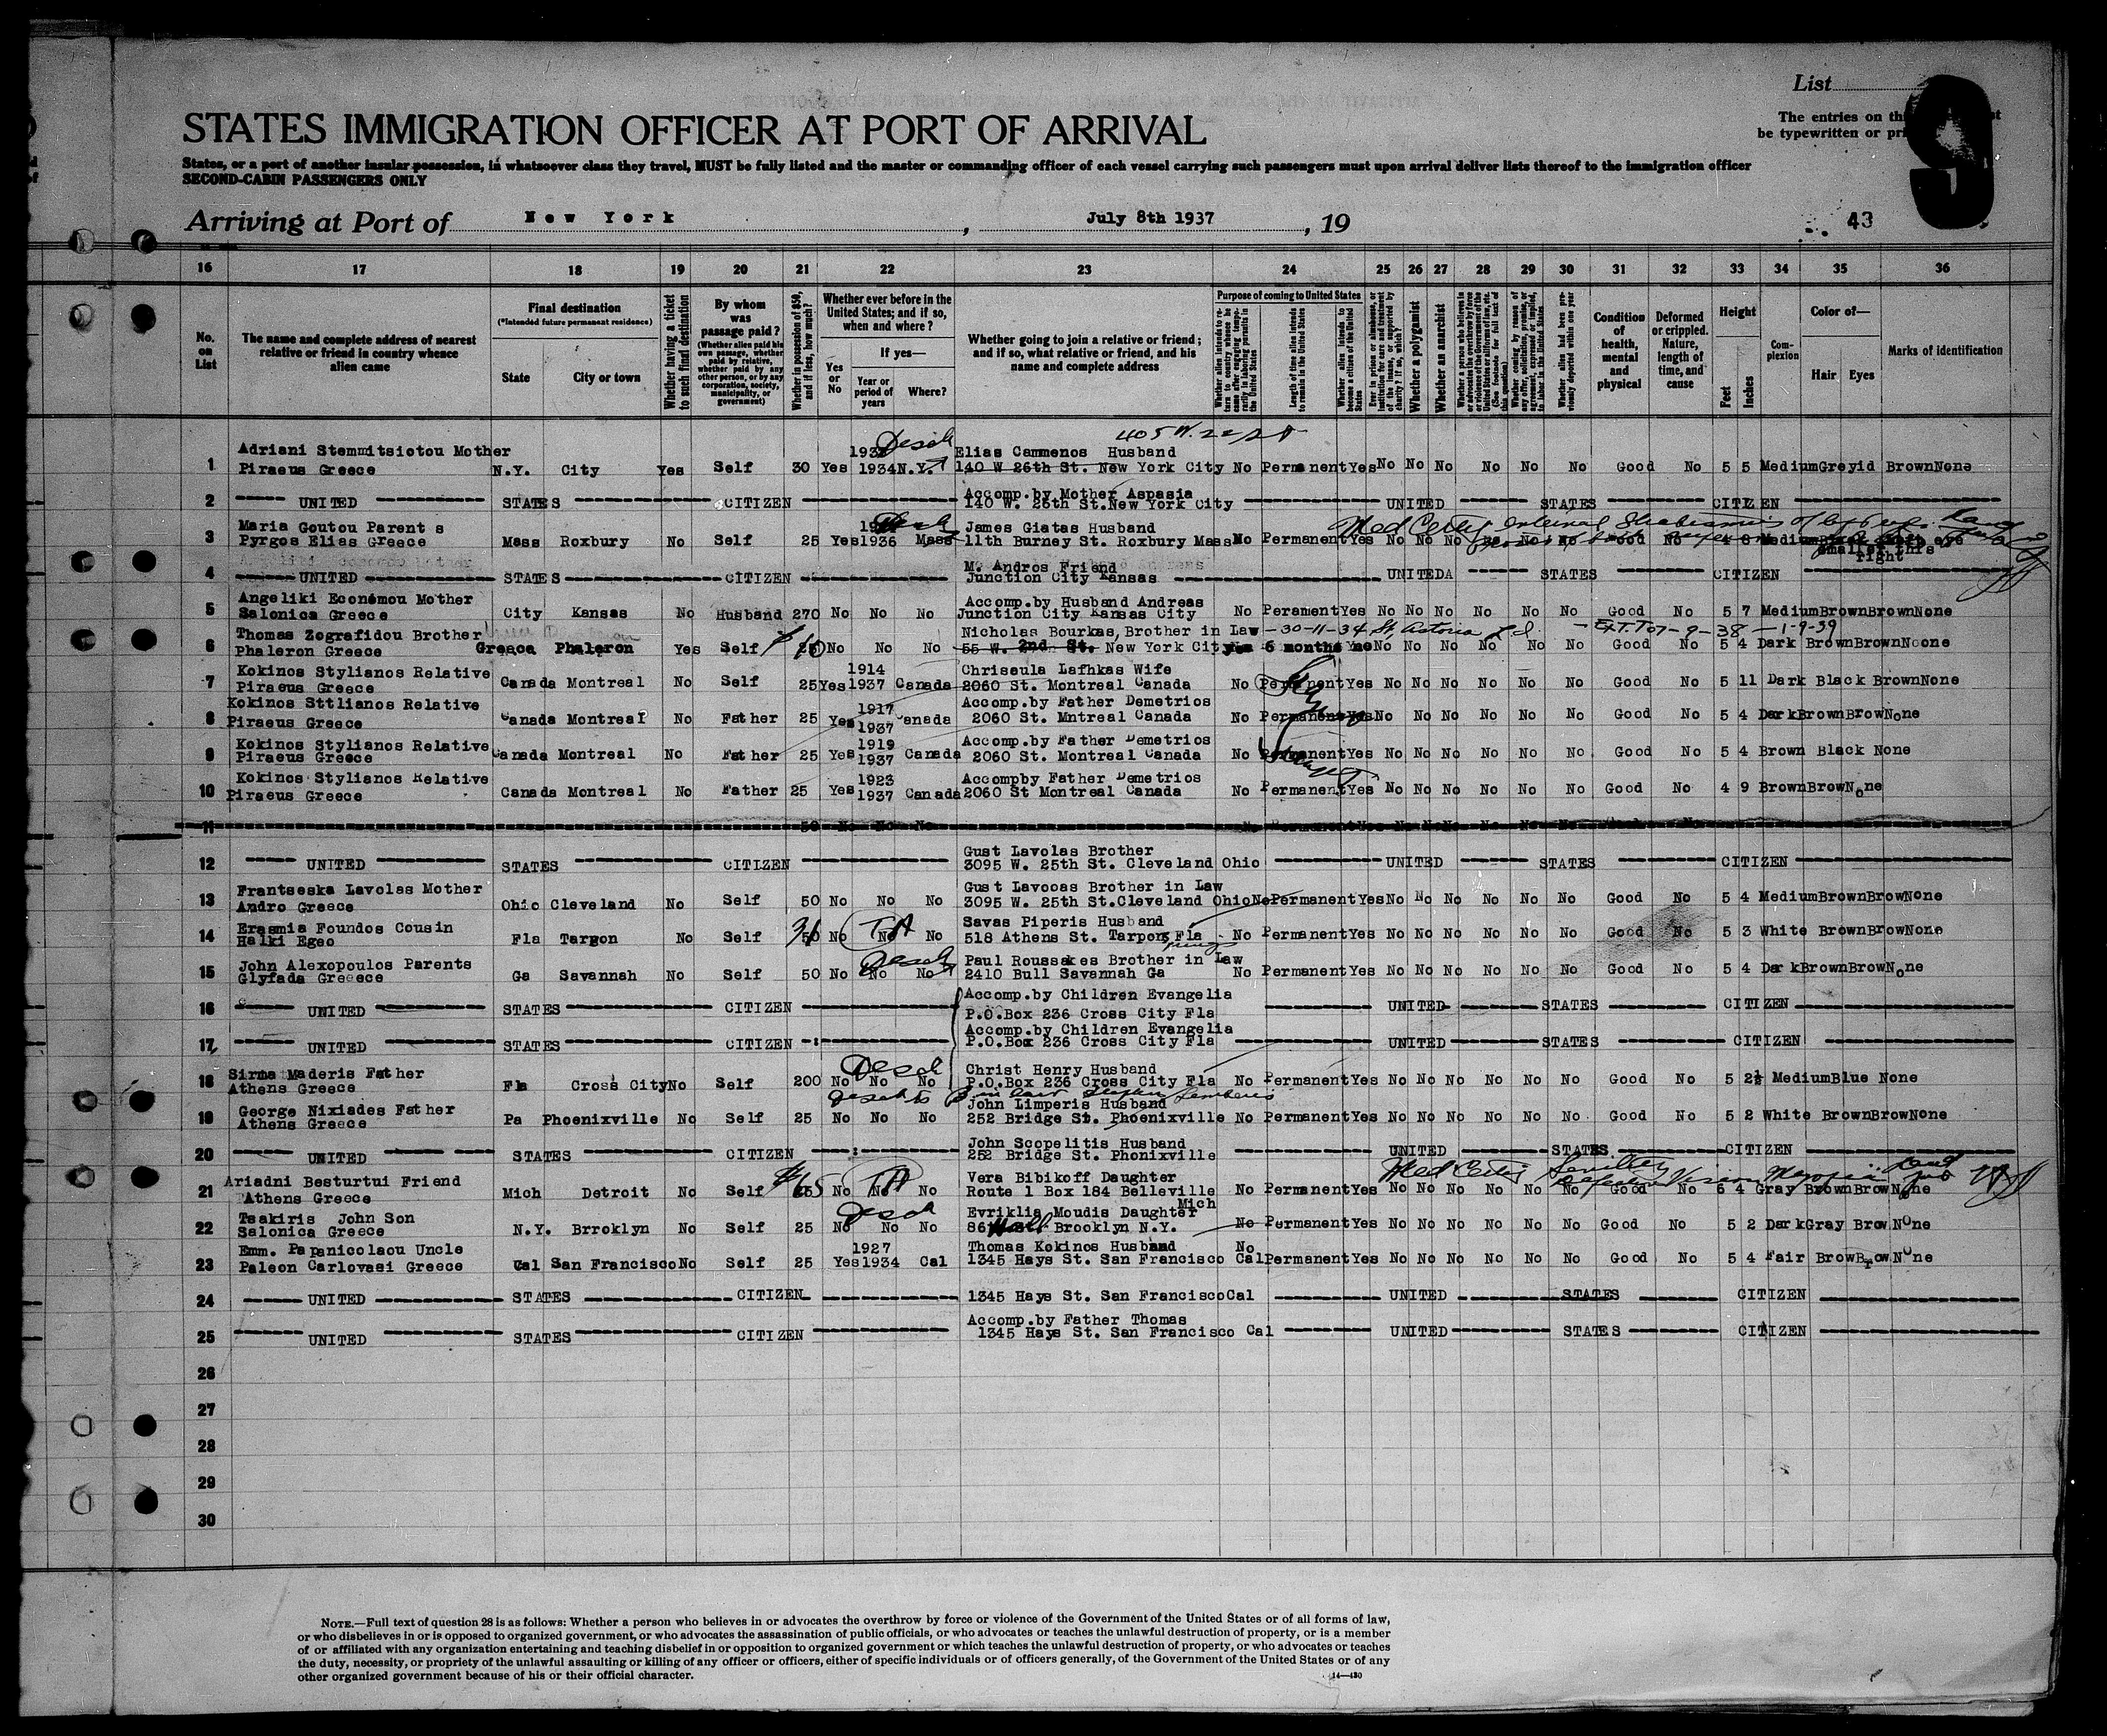 List
The entries on
be typewritten or pri
9
STATES IMMIGRATION OFFICER AT PORT OF ARRIVAL
States, or a port of another insular possession, in whatsoever class they travel, MUST be fully listed and the master or commanding officer of each vessel carrying such passengers must upon arrival deliver lists thereof to the immigration officer
SECOND-CABIN PASSENGERS ONLY
Arriving at Port of New York, July 8th 1937, 19
43
16 17 18 19 20 21 22 23 24 25 26 27 28 29 30 31 32 33 34 35 36
No. on List
The name and complete address of nearest relative or friend in country whence alien came
Final destination
(*Intended future permanent residence)
State
City or town
Whether having a ticket to such final destination
By whom was passage paid?
(Whether alien paid his own passage, whether paid by relative, whether paid by any other person, or by any corporation, society, municipality, or government)
Whether in possession of $50, and if less, how much?
Whether ever before in the United States; and if so, when and where?
Yes or No
If yes—
Year or period of years
Where?
Whether going to join a relative or friend; and if so, what relative or friend, and his name and complete address
Purpose of coming to United States
Length of time alien intends to remain in the United States
Whether alien intends to become a citizen of the United States
Whether a polygamist
Whether an anarchist
Condition of health, mental and physical
Deformed or crippled. Nature, length of time, and cause
Height
Feet
Inches
Complexion
Color of—
Hair
Eyes
Marks of identification
405 W.
Adriani Stemmitsiotou Mother Elias Cammenos Husband
1 Piraeus Greece N.Y. City Yes Self 30 Yes 1934 N.Y. 140 W 26th St. New York City No Permanent Yes No No No No No No Good No 5 5 Medium Greyid Brown None
Accomp.by Mother Aspasia
2 UNITED STATES CITIZEN 140 W. 26th St.New York City UNITED STATES CITIZEN
Maria Goutou Parents James Giatas Husband Med Certif
3 Pyrgos Elias Greece Mass Roxbury No Self 25 Yes 1936 Mass 11th Burney St. Roxbury Mass No Permanent Yes No No No
smaller this
right
M. Andros Friend
4 UNITED STATES CITIZEN Junction City Kansas UNITEDA STATES CITIZEN
Angeliki Economou Mother Accomp.by Husband Andreas
5 Salonica Greece City Kansas No Husband 270 No No No Junction City Kansas City No Perament Yes No No No No No No Good No 5 7 Medium Brown Brown None
Thomas Zografidou Brother Nicholas Bourkas, Brother in Law - 30-11-34 St, Astoria L I
6 Phaleron Greece Greece Phaleron Yes Self No No No 55 W. 2nd St. New York City 6 months No No No No No No Good No 5 4 Dark Brown Brown Noone
Kokinos Stylianos Relative 1914 Chriseula Lafhkas Wife
7 Piraeus Greece Canada Montreal No Self 25 Yes 1937 Canada 2060 St. Montreal Canada No Permanent Yes No No No No No No Good No 5 11 Dark Black Brown None
Kokinos Sttlianos Relative 1917 Accomp.by Father Demetrios
8 Piraeus Greece Canada Montreal No Father 25 Yes 1937 Canada 2060 St. Mntreal Canada No Permanent Yes No No No No No No Good No 5 4 Dark Brown Brow None
Kokinos Stylianos Relative 1919 Accomp.by Father Demetrios
9 Piraeus Greece Canada Montreal No Father 25 Yes 1937 Canada 2060 St. Montreal Canada No Permanent Yes No No No No No No Good No 5 4 Brown Black None
Kokinos Stylianos Relative 1923 Accompby Father Demetrios
10 Piraeus Greece Canada Montreal No Father 25 Yes 1937 Canada 2060 St Montreal Canada No Permanent Yes No No No No No No Good No 4 9 Brown Brow None
11 50 No No No No Permanent Yes No No No No No No
Gust Lavolas Brother
12 UNITED STATES CITIZEN 3095 W. 25th St. Cleveland Ohio UNITED STATES CITIZEN
Frantseska Lavolas Mother Gust Lavooas Brother in Law
13 Andro Greece Ohio Cleveland No Self 50 No No No 3095 W. 25th St.Cleveland Ohio No Permanent Yes No No No No No No Good No 5 4 Medium Brown Brow None
Erasmia Foundos Cousin Savas Piperis Husband
14 Halki Egeo Fla Targon No Self 50 No No No 518 Athens St. Tarpon Fla No Permanent Yes No No No No No No Good No 5 3 White Brown Brow None
John Alexopoulos Parents Paul Roussakes Brother in Law
15 Glyfada Greeece Ga Savannah No Self 50 No No No 2410 Bull Savannah Ga No Permanent Yes No No No No No No Good No 5 4 Dark Brown Brow None
Accomp.by Children Evangelia
16 UNITED STATES CITIZEN P.O.Box 236 Cross City Fla UNITED STATES CITIZEN
Accomp.by Children Evangelia
17 UNITED STATES CITIZEN P.O.Box 236 Cross City Fla UNITED STATES CITIZEN
Sirma Maderis Father Christ Henry Husband
18 Athens Greece Fla Cross City No Self 200 No No No P.O.Box 236 Cross City Fla No Permanent Yes No No No No No No Good No 5 2½ Medium Blue None
George Nixiades Father John Limperis Husband
19 Athens Greece Pa Phoenixville No Self 25 No No No 252 Bridge St. Phoenixville No Permanent Yes No No No No No No Good No 5 2 White Brown Brow None
John Scopelitis Husband
20 UNITED STATES CITIZEN 252 Bridge St. Phonixville UNITED STATES CITIZEN
Ariadni Besturtui Friend $65 Vera Bibikoff Daughter Med Certif
21 Athens Greece Mich Detroit No Self No No No Route 1 Box 184 Belleville Mich No Permanent Yes No No No No No No Good No 6 4 Gray Brown Brow None
Tsakiris John Son Evriklia Moudis Daughter
22 Salonica Greece N.Y. Brroklyn No Self 25 No No No Brooklyn N.Y. No Permanent Yes No No No No No No Good No 5 2 Dark Gray Brow None
Emm. Papanicolaou Uncle 1927 Thomas Kokinos Husband No
23 Paleon Carlovasi Greece Cal San Francisco No Self 25 Yes 1934 Cal 1345 Hays St. San Francisco Cal Permanent Yes No No No No No No Good No 5 4 Fair Brow Brow None
24 UNITED STATES CITIZEN 1345 Hays St. San Francisco Cal UNITED STATES CITIZEN
Accomp.by Father Thomas
25 UNITED STATES CITIZEN 1345 Hays St. San Francisco Cal UNITED STATES CITIZEN
26
27
28
29
30
NOTE.—Full text of question 28 is as follows: Whether a person who believes in or advocates the overthrow by force or violence of the Government of the United States or of all forms of law,
or who disbelieves in or is opposed to organized government, or who advocates the assassination of public officials, or who advocates or teaches the unlawful destruction of property, or is a member
of or affiliated with any organization entertaining and teaching disbelief in or opposition to organized government or which teaches the unlawful destruction of property, or who advocates or teaches
the duty, necessity, or propriety of the unlawful assaulting or killing of any officer or officers, either of specific individuals or of officers generally, of the Government of the United States or of any
other organized government because of his or their official character.
14—430